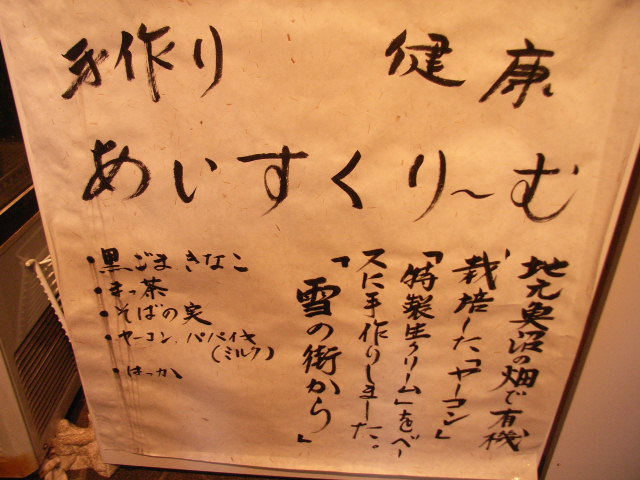 手作り 健康
あいすくり～む
地元魚沼の畑で有機
栽培した「ヤーコン」
「特製生クリーム」をベー
スに手作りしました。
「雪の街から」
・黒ごま きなこ
・まっ茶
・そばの実
・ヤーコン、パパイヤ
(ミルク)
・はっか